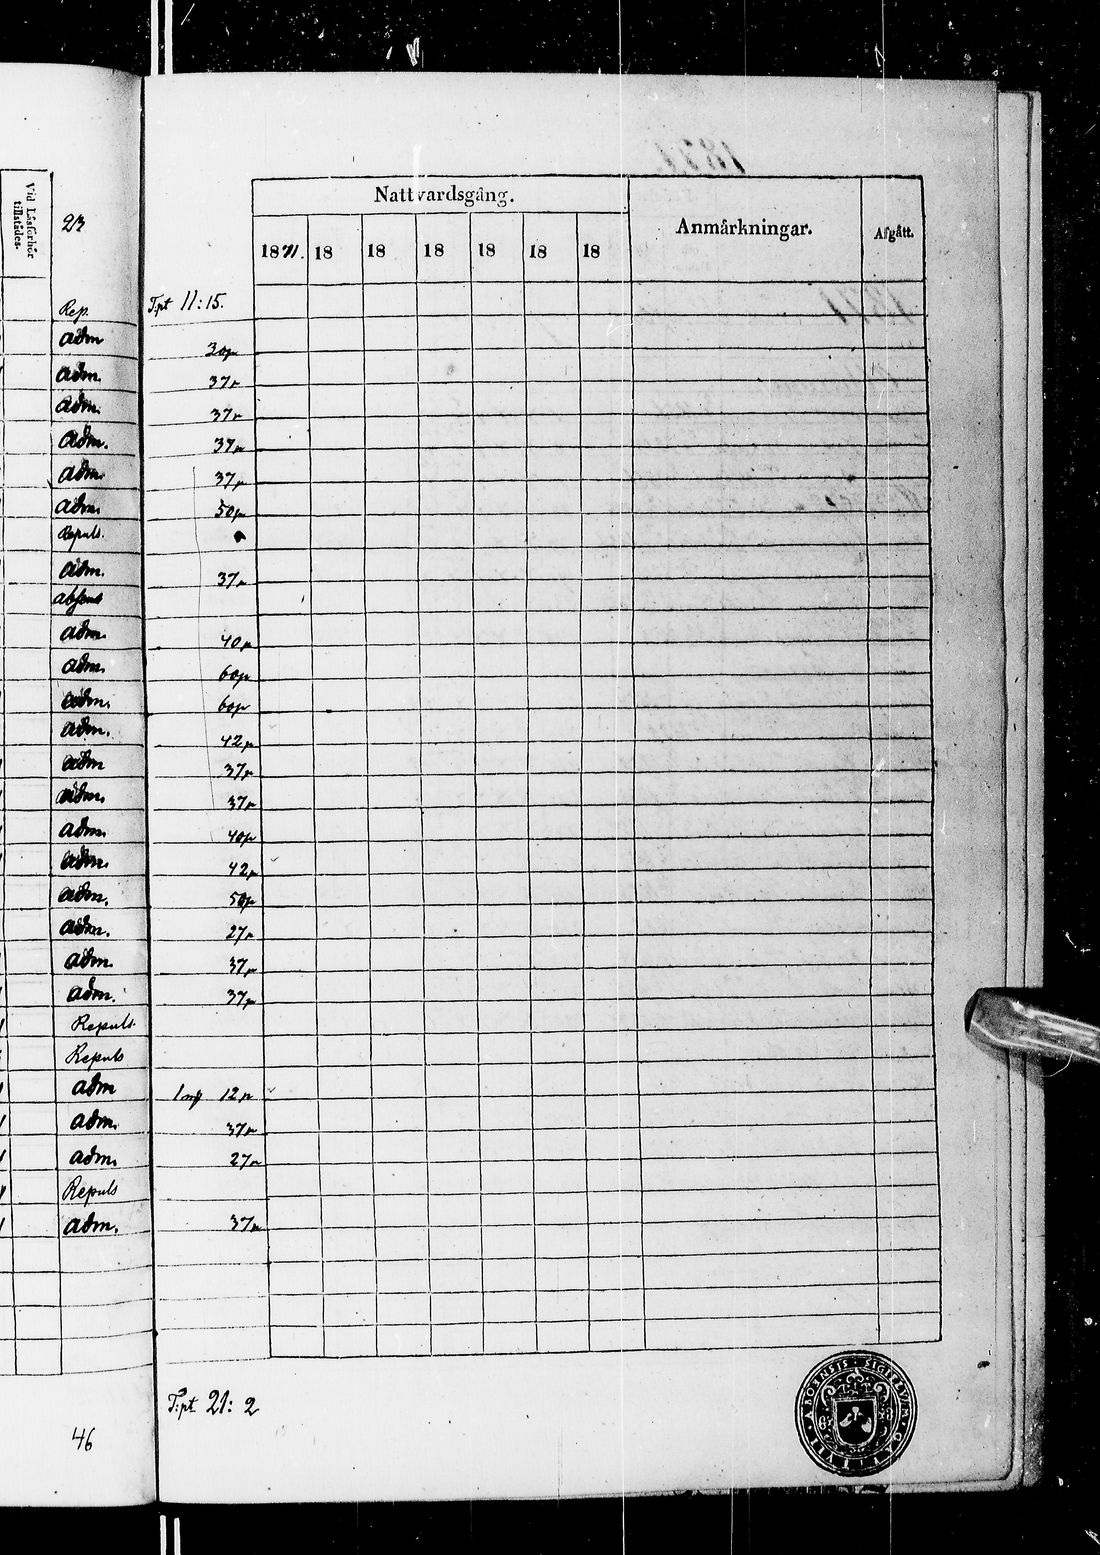 Vid Läsförhör
tillstädes.
Nattvardsgång.
Anmärkningar.
Afgått.
1871. 18 18 18 18 18 18
Rep. T:pt 11:15.
adm 30p
adm. 37p
adm. 37p
adm. 37p
adm. 37p
adm. 50p
Repuls.
adm. 37p
absens
adm. 40p
adm. 60p
adm. 60p
adm. 42p
adm 37p
adm. 37p
adm. 40p
adm. 42p
adm. 50p
adm. 27p
adm. 37p
adm. 37p
Repuls.
Repuls
adm 1 mk 12p
adm. 37p
adm. 27p
Repuls
adm. 37p
T:pt 21:2
46